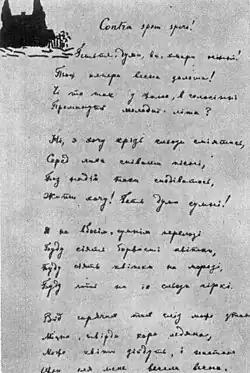 Contra spem spero!
Гетьте, думи, ви, хмари осінні!
Тож тепера весна золота!
Чи то так у жалю, в голосінні
Проминуть молодії літа?
Ні, я хочу крізь сльози сміятись,
Серед лиха співати пісні,
Без надії таки сподіватись,
Жити хочу! Геть думи сумні!
Я на вбогім, сумнім перелозі
Буду сіять барвисті квітки,
Буду сіять квітки на морозі,
Буду лить на їх сльози гіркі.
Від гарячих тих сліз може тане
Міцна, тверда кора ледяна,
Може квіти зійдуть, і настане
Ще для мене весела весна.